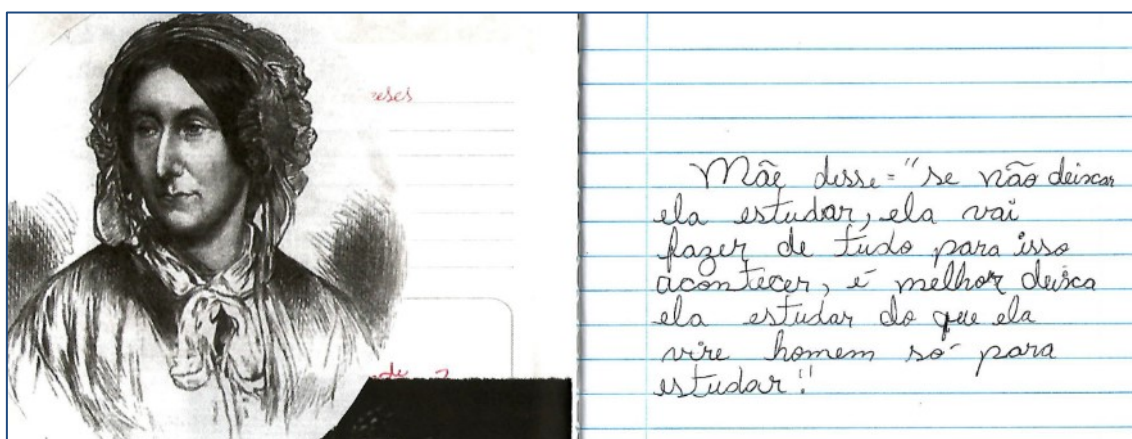 eses
Mãe disse = "se não deixar
ela estudar, ela vai
fazer de tudo para isso
acontecer, é melhor deixca
ela estudar do que ela
vire homem só para
estudar"